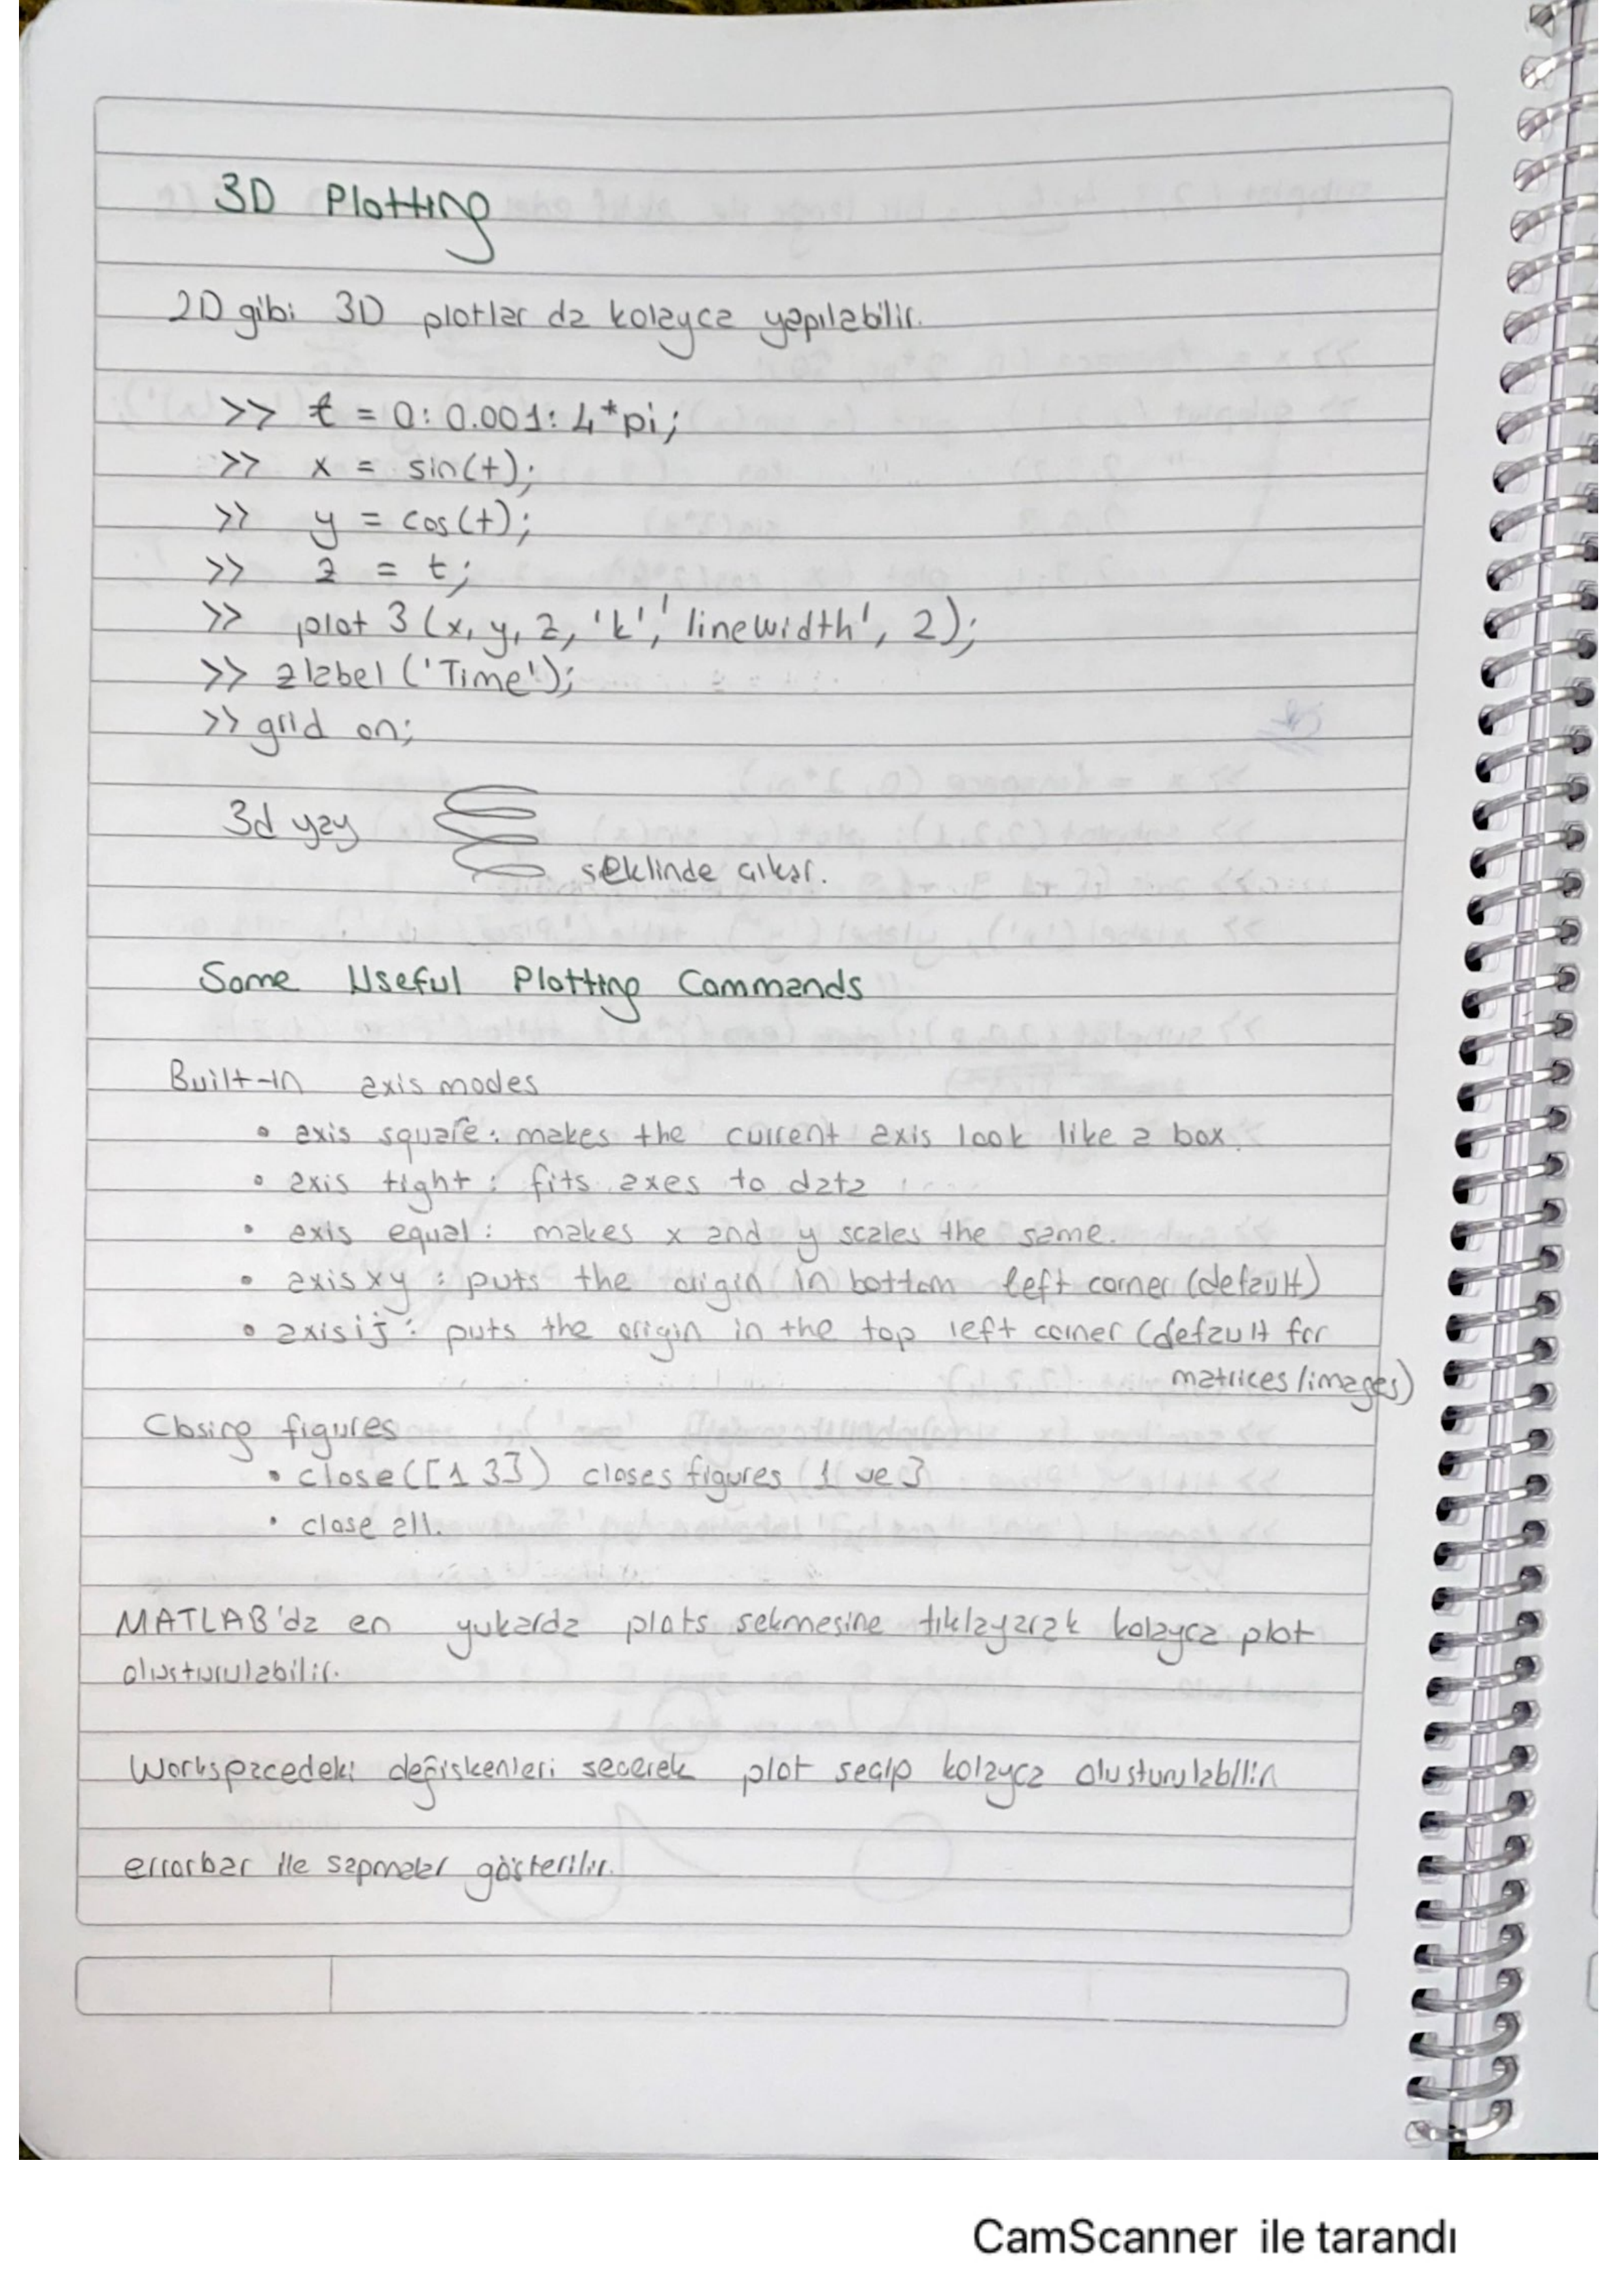 3D Plotting
2D gibi 3D plotlar da kolayca yapılabilir.
>> t = 0:0.001:4*pi;
>> x = sin(t);
>> y = cos(t);
>> z = t;
>> plot 3 (x, y, z, 'k', 'linewidth', 2);
>> zlabel ('Time');
>> grid on;
3d yay
seklinde cıkar.
Some Useful Plotting Commands
Built-in axis modes
• axis square: makes the current axis look like a box.
• axis tight: fits axes to data
• axis equal: makes x and y scales the same.
• axis xy: puts the origin in bottom left corner (default)
• axis ij: puts the origin in the top left corner (default for
matrices/images)
Closing figures
• close([1 3]) closes figures 1 ve 3
• close all.
MATLAB'da en yukarda plots sekmesine tıklayarak kolayca plot
olusturulabilir.
Workspacedeki değiskenleri secerek plot secip kolayca olusturulabilir
errorbar ile sapmalar gösterilir.
CamScanner ile tarandı